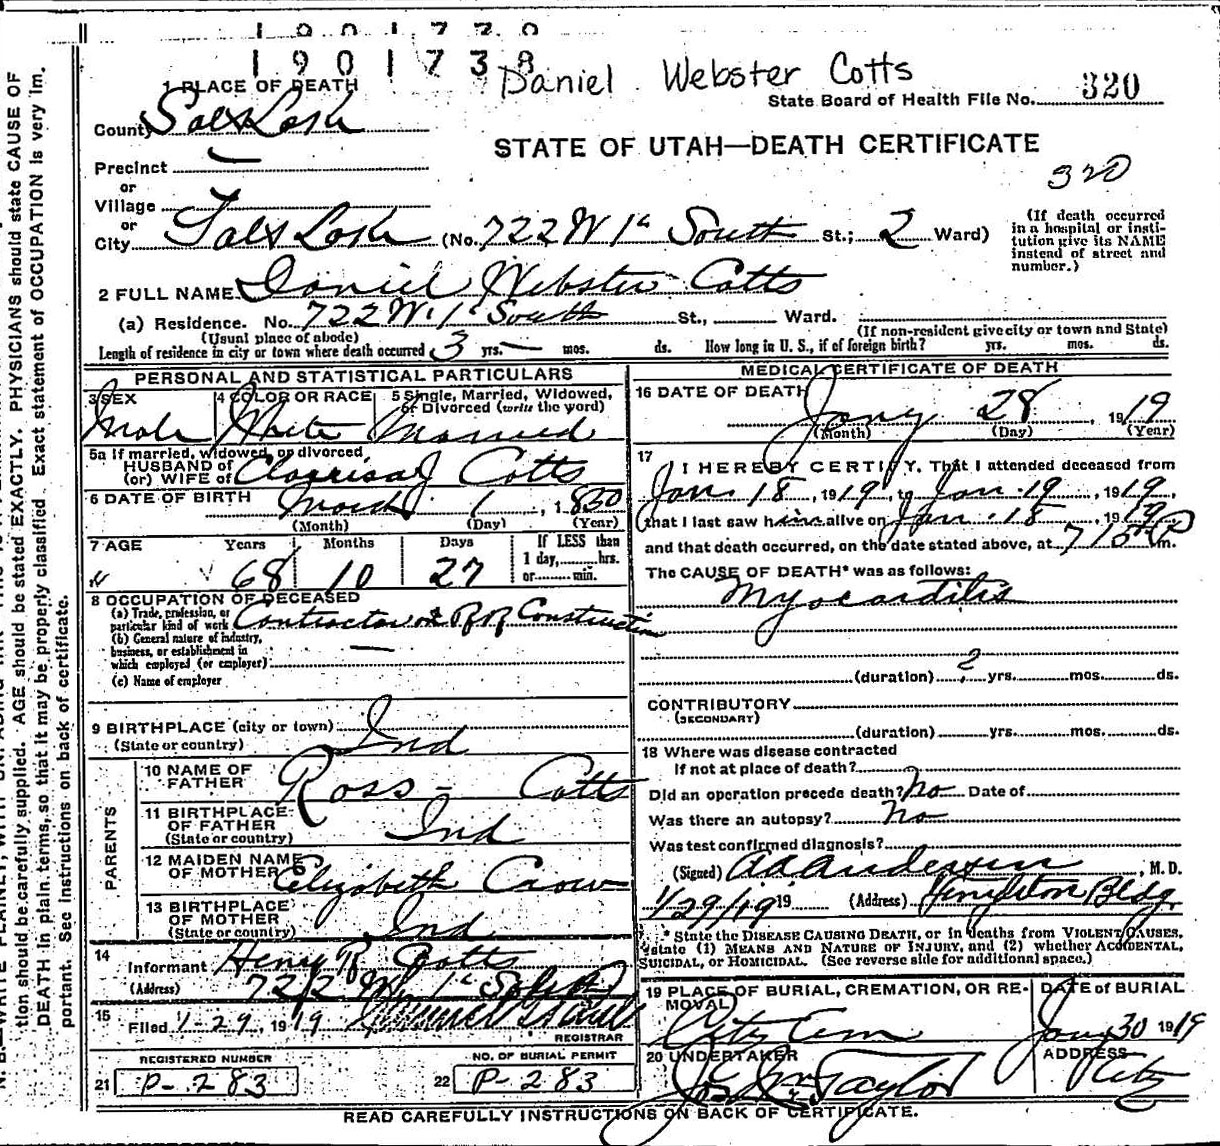 1901738
Daniel Webster Cotts
1 PLACE OF DEATH
State Board of Health File No. 320
County Salt Lake
STATE OF UTAH—DEATH CERTIFICATE
320
Precinct
or
Village
or
City Salt Lake (No. 722 W 1st South St.; 2 Ward)
(If death occurred in a hospital or institution give its NAME instead of street and number.)
2 FULL NAME Daniel Webster Cotts
(a) Residence. No. 722 W. 1st South St., Ward.
(Usual place of abode) (If non-resident give city or town and State)
Length of residence in city or town where death occurred 3 yrs. — mos. ds. How long in U. S., if of foreign birth? yrs. mos. ds.
PERSONAL AND STATISTICAL PARTICULARS
3 SEX 4 COLOR OR RACE 5 Single, Married, Widowed,
or Divorced (write the word)
Male White Married
5a If married, widowed, or divorced
HUSBAND of
(or) WIFE of Clarrisa J Cotts
6 DATE OF BIRTH March 1, 1850
(Month) (Day) (Year)
7 AGE Years Months Days If LESS than
1 day, hrs.
68 10 27 or min.
8 OCCUPATION OF DECEASED
(a) Trade, profession, or
particular kind of work Contractor on RR Construction
(b) General nature of industry,
business, or establishment in
which employed (or employer) —
(c) Name of employer
9 BIRTHPLACE (city or town)
(State or country) Ind
PARENTS
10 NAME OF
FATHER Ross - Cotts
11 BIRTHPLACE
OF FATHER
(State or country) Ind
12 MAIDEN NAME
OF MOTHER Elizabeth Crow
13 BIRTHPLACE
OF MOTHER
(State or country) Ind
14
Informant Henry R Cotts
(Address) 722 W. 1st So
15
Filed 1-29, 1919
REGISTRAR
REGISTERED NUMBER NO. OF BURIAL PERMIT
21 P-283 22 P-283
MEDICAL CERTIFICATE OF DEATH
16 DATE OF DEATH
Jany 28, 1919
(Month) (Day) (Year)
17
I HEREBY CERTIFY, That I attended deceased from
Jan 18, 1919, to Jan. 19, 1919,
that I last saw him alive on Jan. 18, 1919
and that death occurred, on the date stated above, at 715 P m.
The CAUSE OF DEATH* was as follows:
Myocarditis
(duration) 2 yrs. mos. ds.
CONTRIBUTORY
(SECONDARY)
(duration) yrs. mos. ds.
18 Where was disease contracted
If not at place of death?
Did an operation precede death? No Date of
Was there an autopsy? No
Was test confirmed diagnosis?
(Signed) Anderson, M. D.
1/29/19 19 (Address) Bldg.
* State the DISEASE CAUSING DEATH, or in deaths from VIOLENT CAUSES,
state (1) MEANS AND NATURE OF INJURY, and (2) whether ACCIDENTAL,
SUICIDAL, or HOMICIDAL. (See reverse side for additional space.)
19 PLACE OF BURIAL, CREMATION, OR RE-
MOVAL DATE of BURIAL
City Cem Jany 30 1919
20 UNDERTAKER ADDRESS
Jos Wm Taylor City
READ CAREFULLY INSTRUCTIONS ON BACK OF CERTIFICATE.
tion should be carefully supplied. AGE should be stated EXACTLY. PHYSICIANS should state CAUSE OF
DEATH in plain terms, so that it may be properly classified. Exact statement of OCCUPATION is very im-
portant. See instructions on back of certificate.